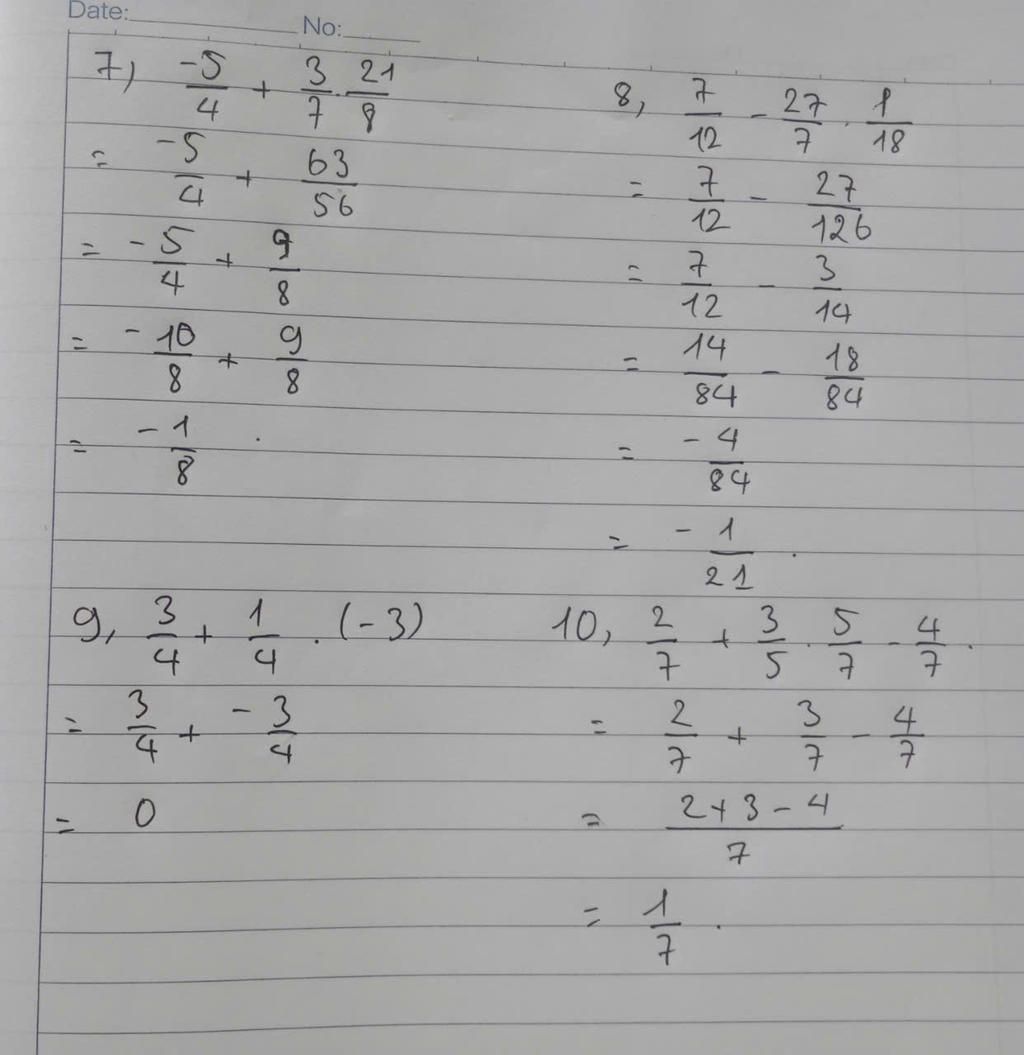 Date: No:
7, -5/4 + 3/7 . 21/8
= -5/4 + 63/56
= -5/4 + 9/8
= -10/8 + 9/8
= -1/8 .
8, 7/12 - 27/7 . 1/18
= 7/12 - 27/126
= 7/12 - 3/14
= 14/84 - 18/84
= -4/84
= -1/21 .
9, 3/4 + 1/4 . (-3)
= 3/4 + -3/4
= 0
10, 2/7 + 3/5 . 5/7 - 4/7 .
= 2/7 + 3/7 - 4/7
= 2+3-4/7
= 1/7 .